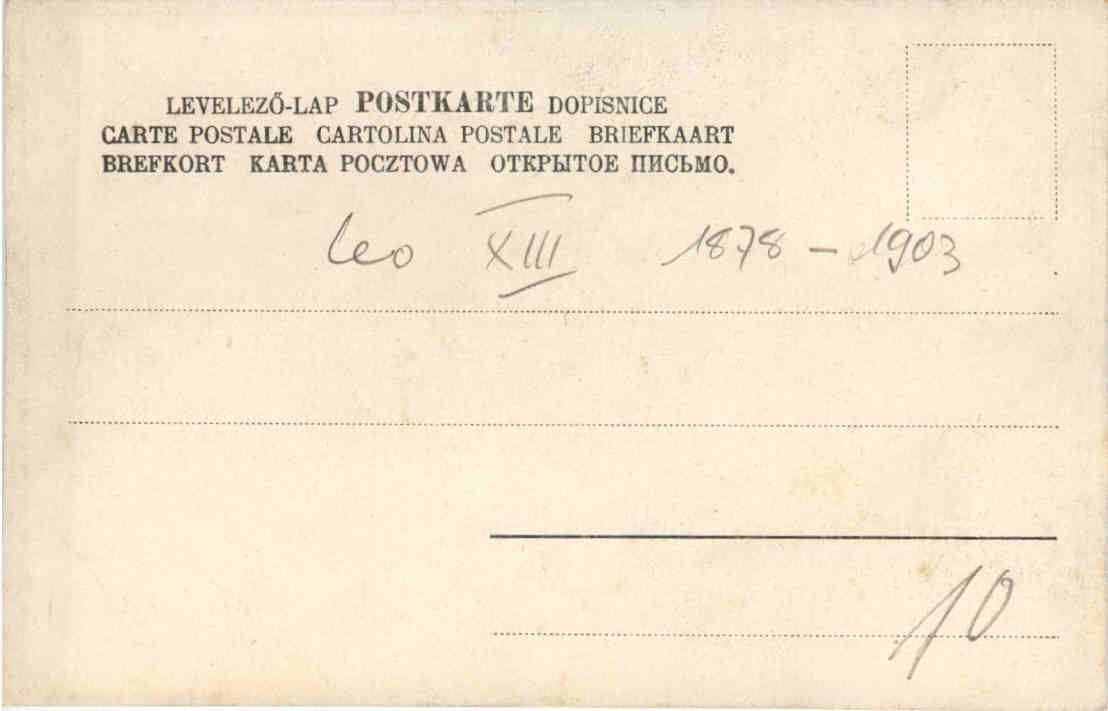 LEVELEZŐ-LAP POSTKARTE DOPISNICE
CARTE POSTALE CARTOLINA POSTALE BRIEFKAART
BREFKORT KARTA POCZTOWA ОТКРЫТОЕ ПИСЬМО.
Leo XIII 1878 - 1903
10